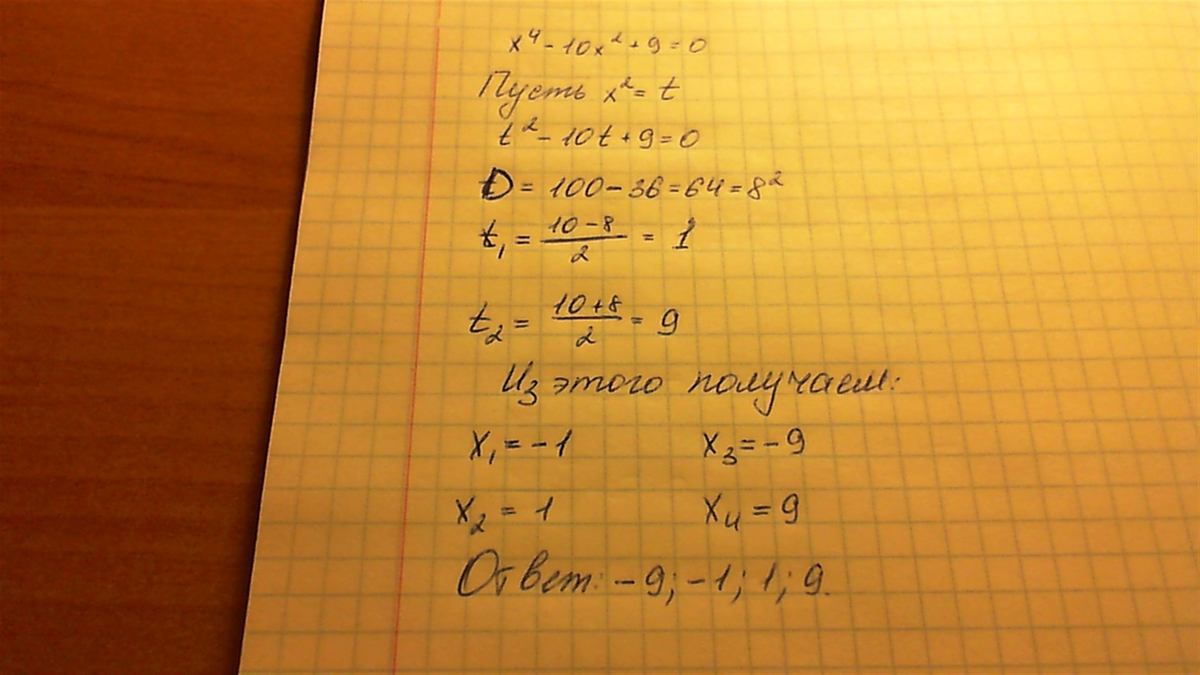 x⁴ - 10x² + 9 = 0
Пусть x² = t
t² - 10t + 9 = 0
D = 100 - 36 = 64 = 8²
t₁ = (10 - 8)/2 = 1
t₂ = (10 + 8)/2 = 9
Из этого получаем:
x₁ = -1 x₃ = -9
x₂ = 1 x₄ = 9
Ответ: -9; -1; 1; 9.